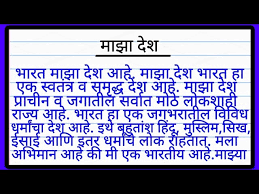 माझा देश
भारत माझा देश आहे. माझा देश भारत हा
एक स्वतंत्र व समृद्ध देश आहे. माझा देश
प्राचीन व जगातील सर्वात मोठे लोकशाही
राज्य आहे. भारत हा एक जगभरातील विविध
धर्मांचा देश आहे. इथे बहुतांश हिंदू, मुस्लिम,सिख,
ईसाई आणि इतर धर्माचे लोक राहतात. मला
अभिमान आहे की मी एक भारतीय आहे.माझ्या